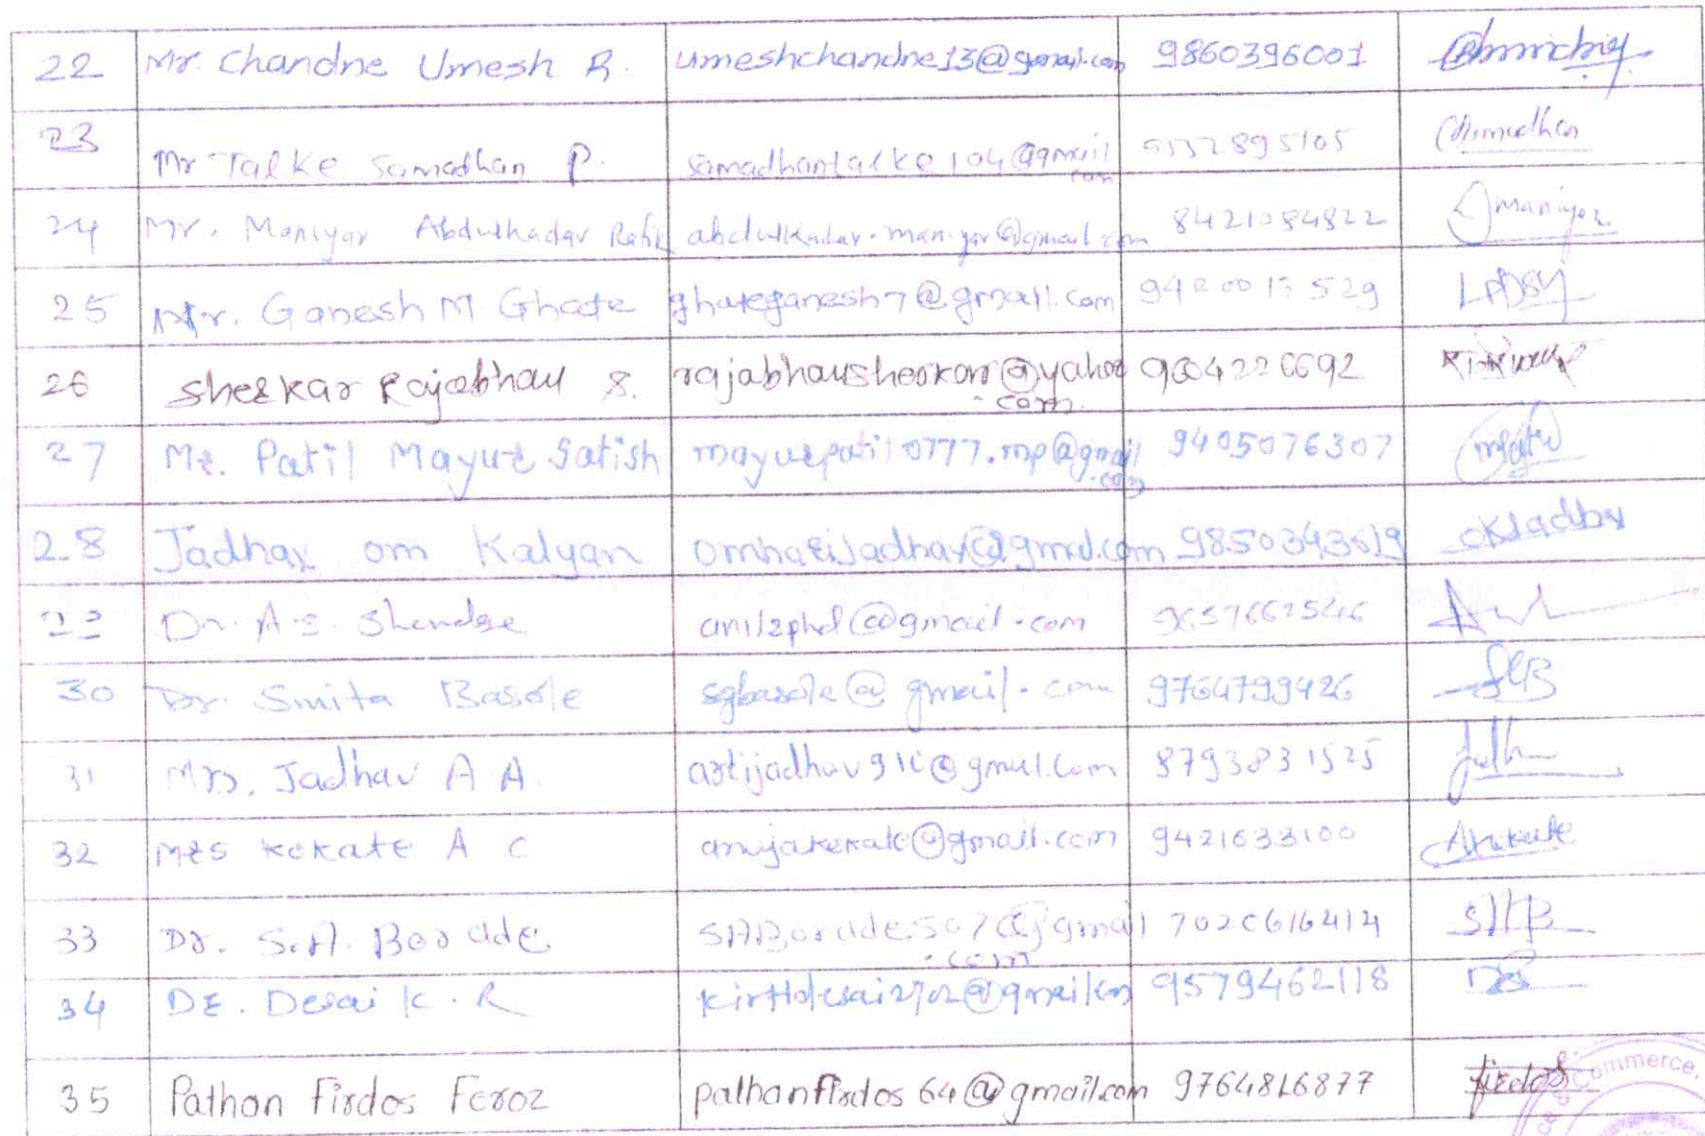 22 Mr. Chandne Umesh R. umeshchandne13@gmail.com 9860396001
23 Mr Talke Samadhan P. samadhantalke104@gmail.com
24 Mr. Maniyar Abdulkadar Rafik abdulkadar.maniyar@gmail.com 8421084822 maniyar
25 Mr. Ganesh M. Ghate ghateganesh7@gmail.com 9420013529
26 Sheskar Rajabhau S. 9604226692
27 Mr. Patil Mayur Satish mayurpatil0777.mp@gmail.com 9405076307
28 Jadhav Om Kalyan omharijadhav@gmail.com 9850343519 OKJadhav
29 Dr. A. S. anilsphd@gmail.com
30 Dr. Smita Basole sgbasole@gmail.com 9764799426 SGB
31 Mrs. Jadhav A A. 8793831525
32 Mrs Kokate A C anujakokate@gmail.com 9421633100
33 Dr. S.A. Borade SABorade507@gmail.com 7020616414 SAB
34 Dr. Desai K. R kirtidesai2702@gmail.com 9579462118
35 Pathan Firdos Feroz pathanfirdos64@gmail.com 9764816877 firdos
Commerce,